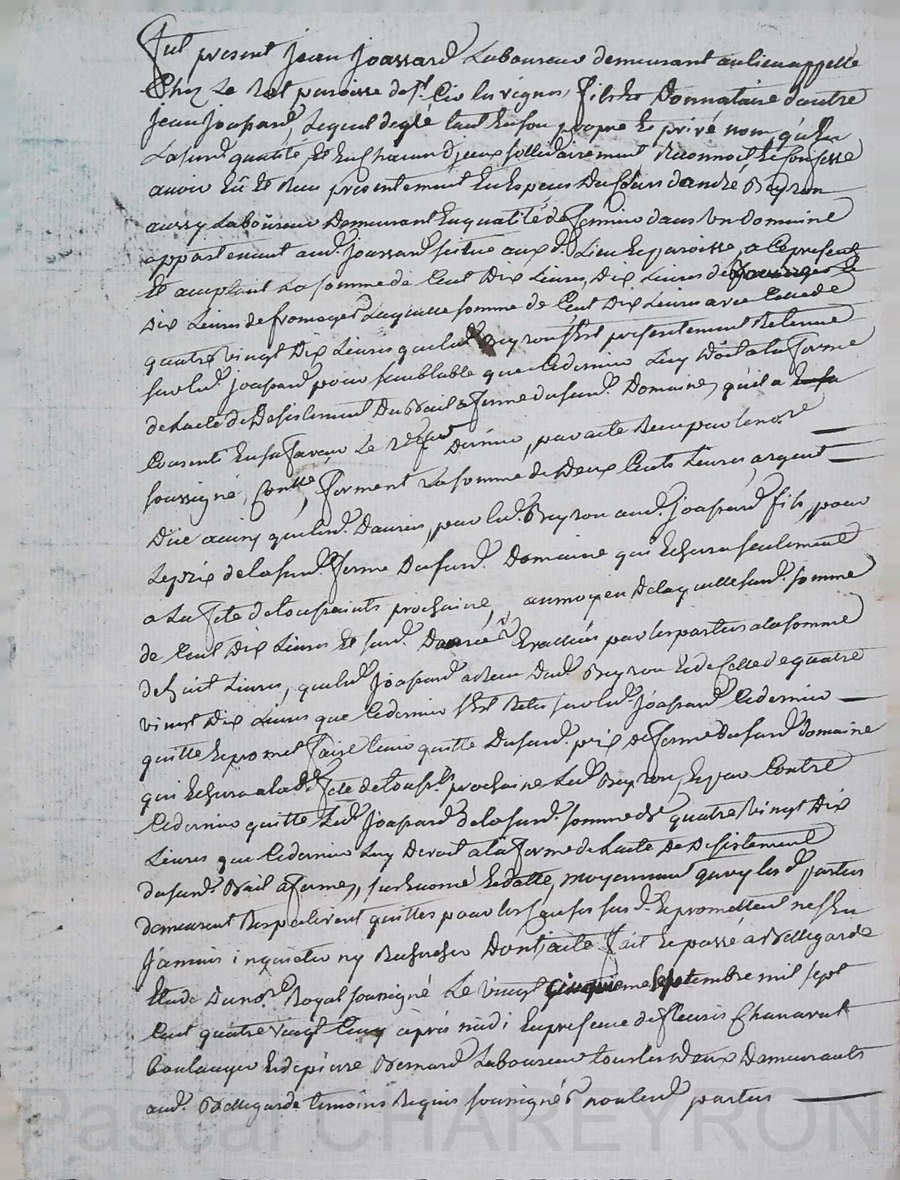 Fut present Jean Joassard Laboureur demeurant au lieu appellé
Chez Le Rat paroisse de St. Cir les vignes, fils et Donnataire d'autre
Jean Joassard, Lequel de gré tant en son propre et privé nom, qu'en
La susd. qualité, et en chacun d'jceux sollidairement Reconnoit et Confesse
avoir Eû et Reçu presentement En Especes Du Cours d'andré Beyron
aussy Laboureur Demeurant En qualité de fermier dans un domaine
appartenant aud. Joassard situé aux d. Lieu et paroisse, a Ce present
Et acceptant La somme de Cent Dix Livres, Dix Livres de
Dix Livres de fromages Laquelle somme de Cent Dix Livres avec Celle de
quatre vingt Dix Livres que led. Beyron s'est presentement Retenue
sur led. Joassard pour semblable que Ce dernier Luy doit a la forme
de L'acte de Desistement Du Bail a ferme du susd. Domaine, qu'il a
Consenti En sa faveur Le dernier, par acte Recu par Le nore.
soussigné, Contlé, forment La somme de Deux Cents Livres argent
Due par led. Beyron aud. Joassard fils, pour
Le prix de la susd. ferme Du susd. Domaine qui Echerra seulement
a La fete de toussaints prochaine, au moyen De laquelle susd. somme
de Cent Dix Livres Et susd. Denrées Evalluées par les parties a la somme
de huit Livres, que led. Joassard a Reçu Dud. Beyron Et de Celle de quatre
vingt Dix Livres que Ce dernier s'est Retenu sur led. Joassard Ce dernier
quitte Et promet faire tenir quitte Du susd. prix de ferme du susd. Domaine
qui Echerra a lad. fete de touss.ts prochaine Led. Beyron, Et par Contre
Ce dernier quitte Led. Joassard de la susd. somme de quatre vingt Dix
Livres que Ce dernier Luy Devoit a la forme de L'acte De Desistement
du susd. Bail a ferme, sus Enoncé Et datté, moyennant quoy les d. parties
demeurent Respectivement quittes pour les Causes susd. Et promettent ne s'En
Jamais inquieter ny Rechercher Dont acte fait Et passé a Bellegarde
Etude Du nore. Royal soussigné Le vingt cinquieme septembre mil sept
Cent quatre vingt Cinq après midi En presence de fleuris Chanavat
boulanger Et de pierre Bernard Laboureur tous les Deux Demeurants
aud. Bellegarde temoins Requis soussignés non led. parties
Pascal CHAREYRON